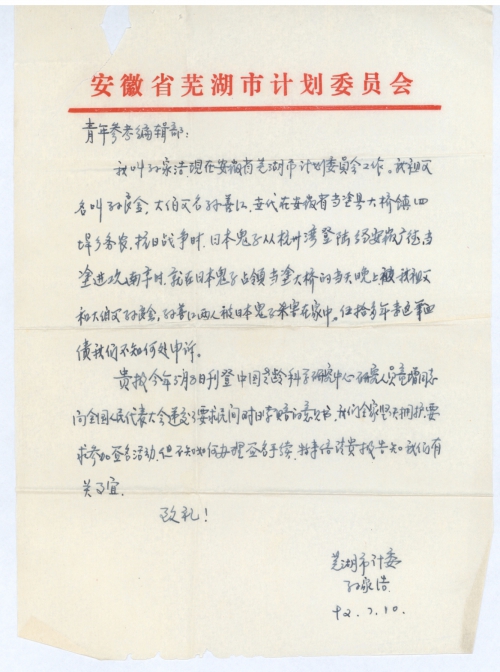 安徽省芜湖市计划委员会
青年参考编辑部：
我叫孙家浩现在安徽省芜湖市计划委员会工作。我祖父
名叫孙良金，大伯父名孙善江，世代在安徽省当涂县大桥镇四
乡务农，抗日战争时，日本鬼子从杭州湾登陆经安徽广德当
涂进攻南京时，就在日本鬼子占领当涂大桥的当天晚上被我祖父
和大伯父孙良金，孙善江两人被日本鬼子杀害在家中。伍拾多年来这笔血
债我们不知何处申诉。
贵报今年5月8日刊登中国老龄科学研究中心研究人员童增同志
向全国人民代表大会递交要求民间对日索赔的意见书，我们全家坚决拥护要
求参加签名活动，但不知如何办理签名手续，特来信请贵报告知我们有
关事宜。
致礼！
芜湖市计委
孙家浩
92.7.10.